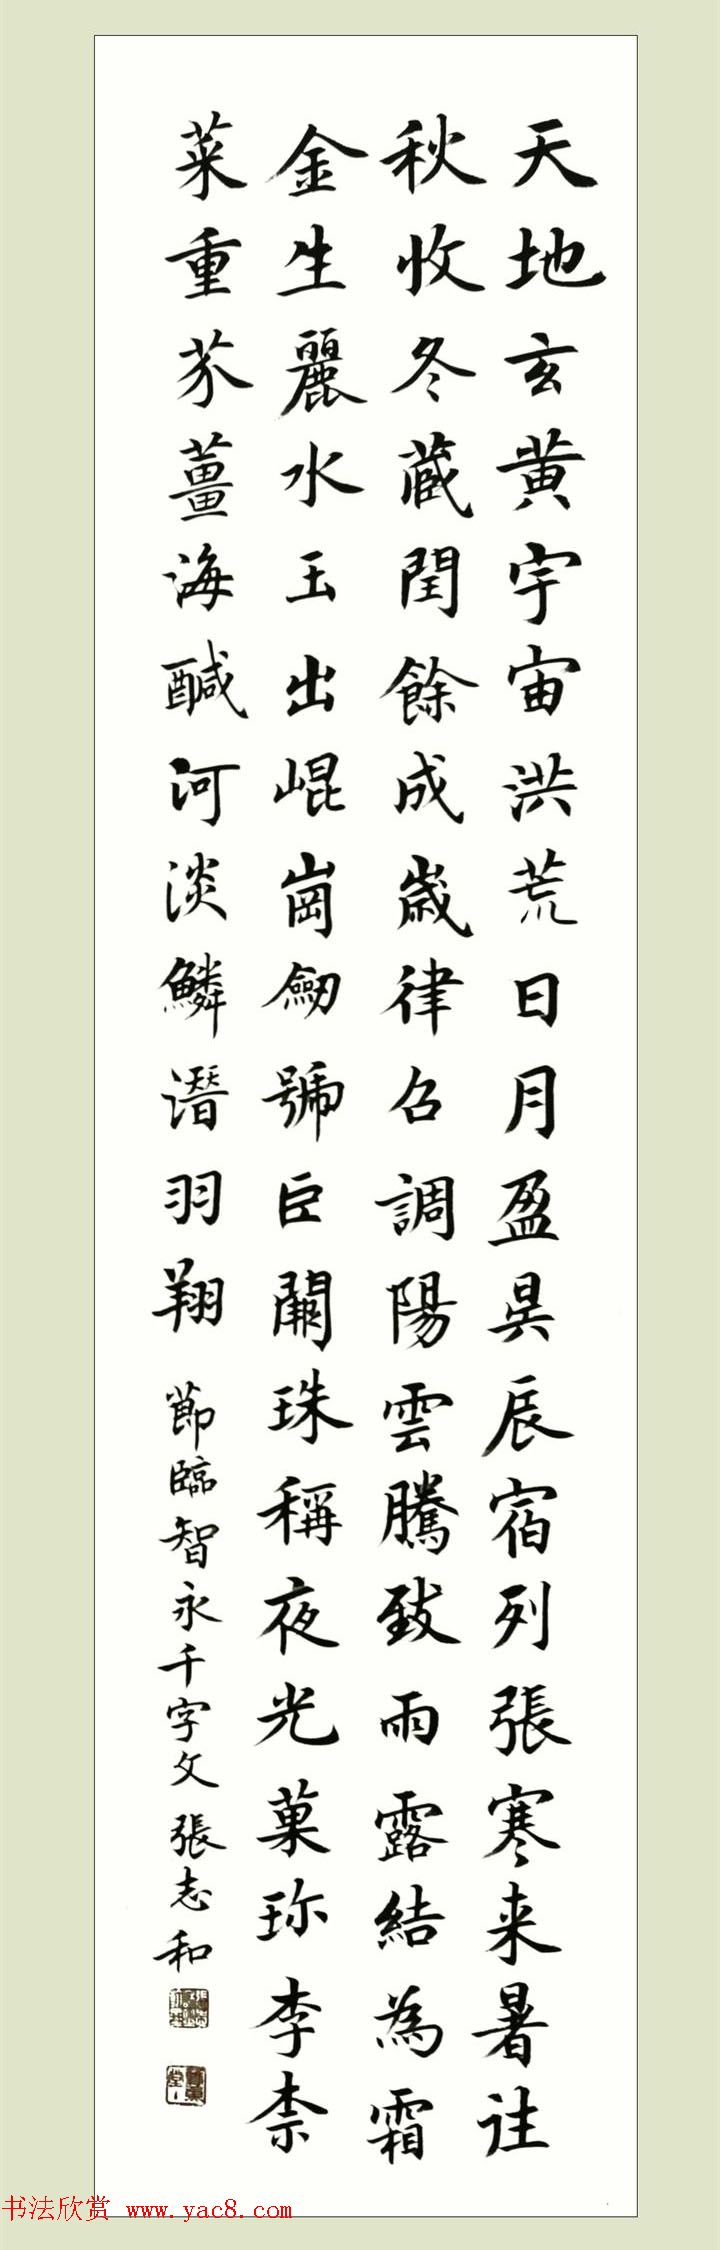 天地玄黄宇宙洪荒日月盈昃辰宿列張寒来暑往
秋收冬藏閏餘成歲律召調陽雲騰致雨露結為霜
金生麗水玉出崐崗劒號巨闕珠稱夜光菓珎李柰
菜重芥薑海醎河淡鱗潛羽翔
節臨智永千字文張志和
书法欣赏 www.yac8.com